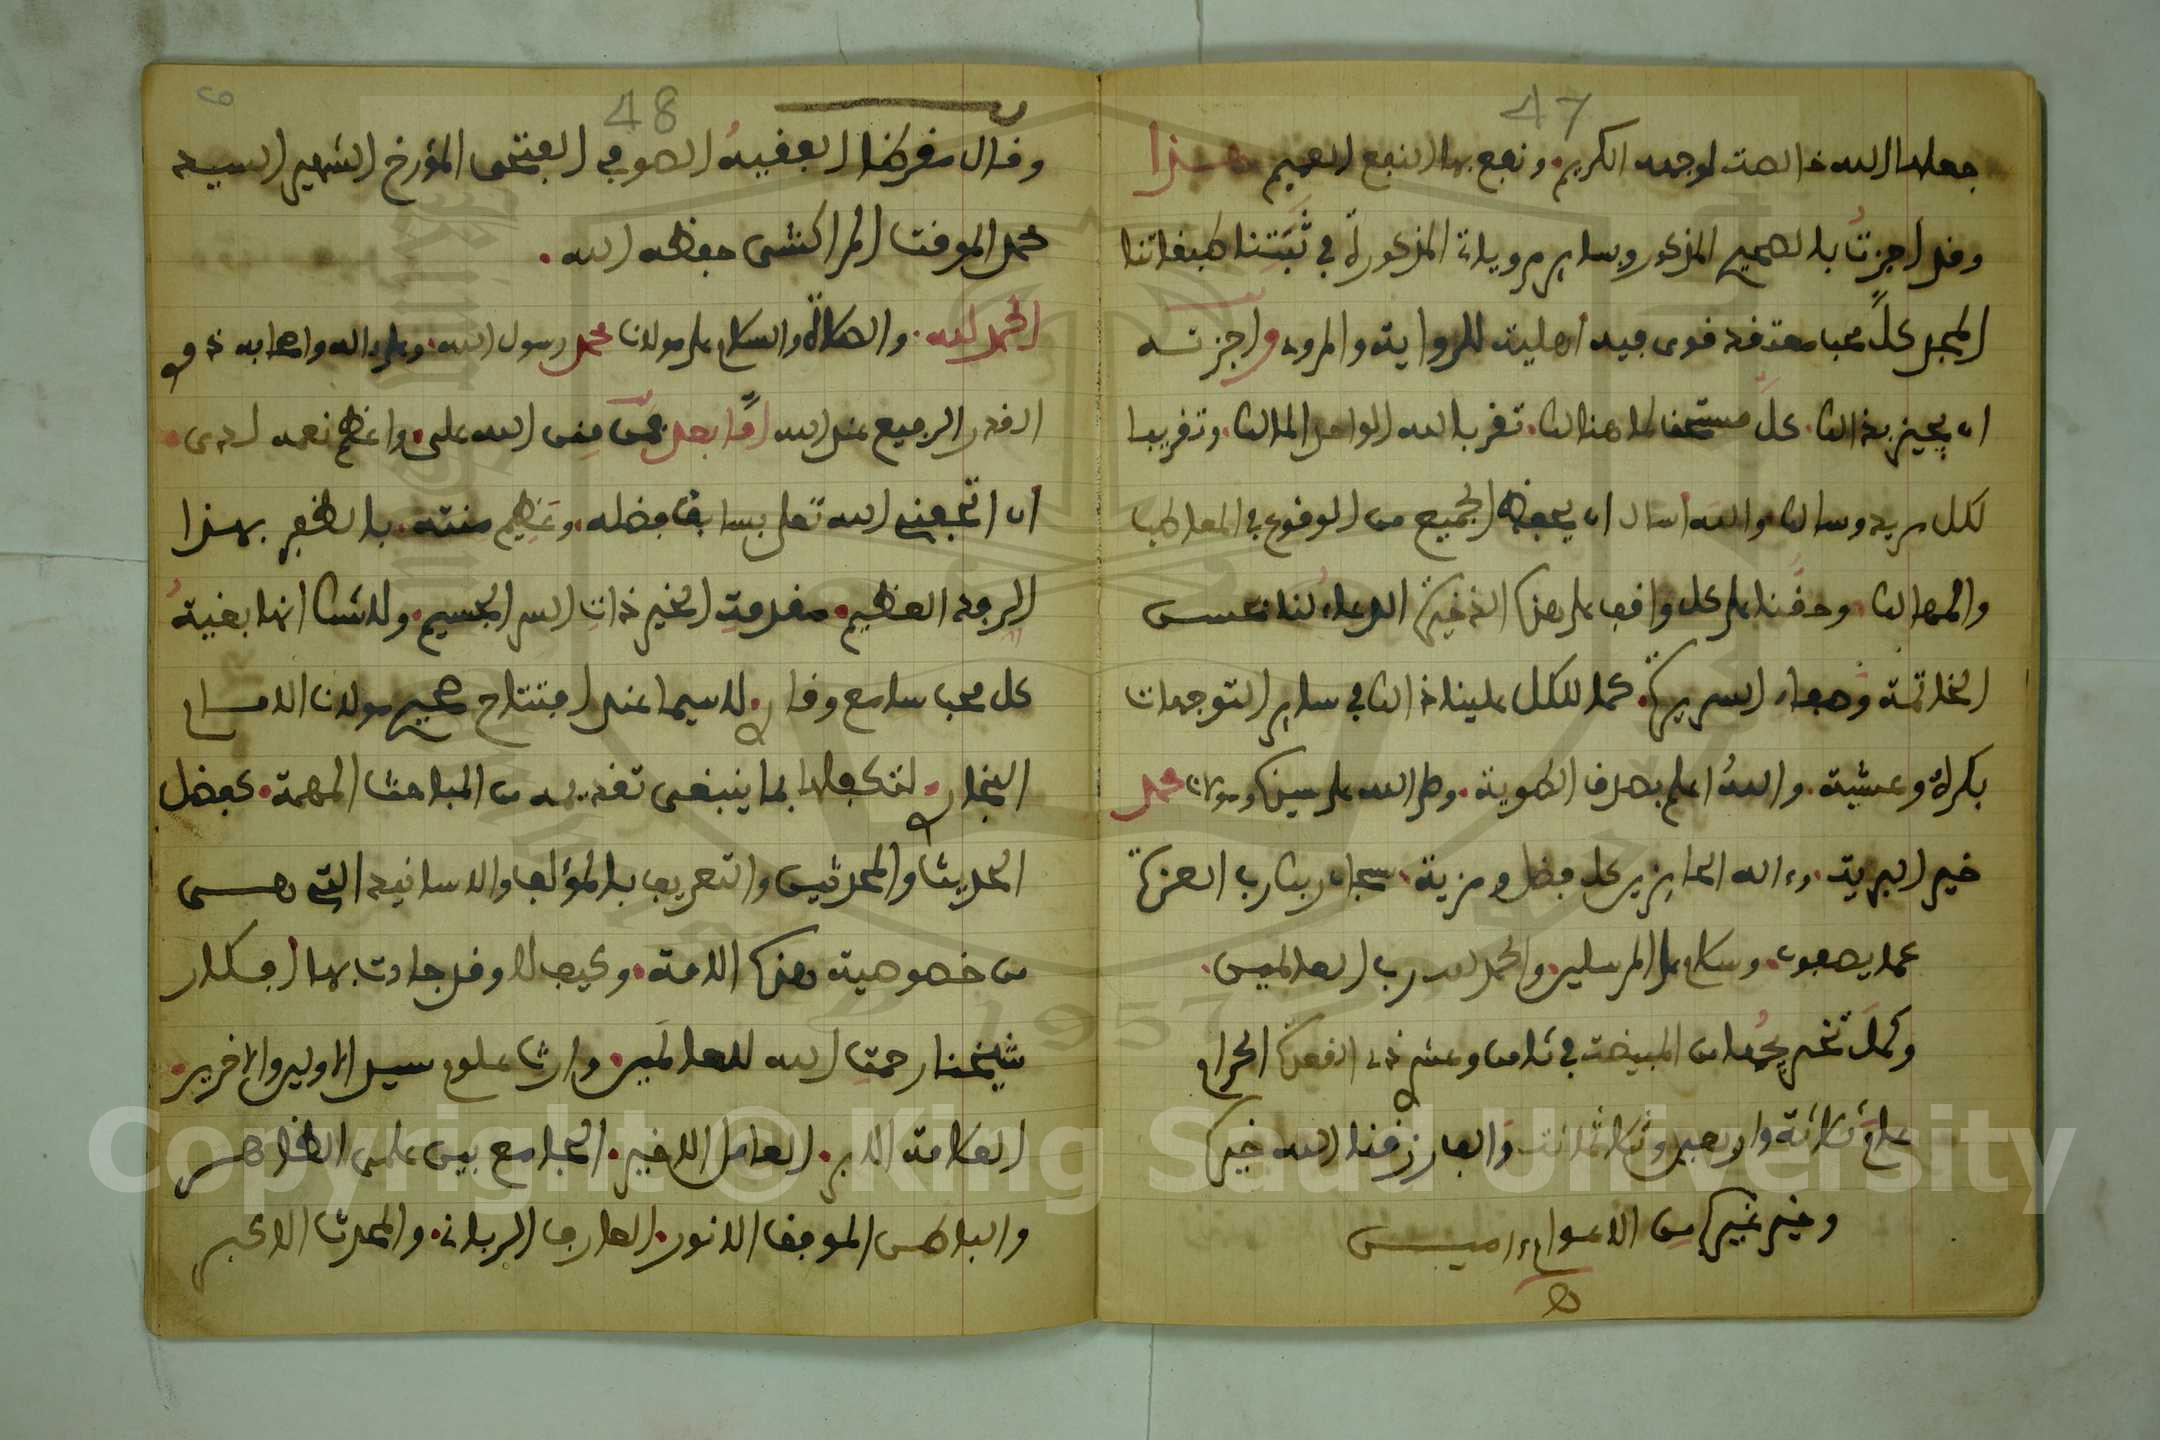 47
جعلها الله خالصة لوجهه الكريم. ونفع بها النفع العميم هذا
وقد اجزتُ بالصحيح المذكور وبساير مروياتي المذكورة في ثَبَتنا طبقاتنا
المجد كلَّ محب معتقد قوي فيه أهلية للرواية والمروءة وأجزته
ان يجيز بذالك. كلَّ مستحق لما هنالك. تقربا لله الواحد المالك. وتقريبا
لكل مريد وسالك والله أسال ان يحفظ الجميع من الوقوع في المعاطب
والمهالك. وحقنا على كل واقف على هذه الذخيرة الدعاءُ لنا بحسن
الخاتمة وصفاء السريرة. كما للكل علينا ذالك في ساير التوجهات
بكرة وعشية. واللهُ اعلم بصدق الطوية. وصلى الله على سيدنا ومولانا محمد
خير البرية. وءاله الحايزين كل فضل ومزية. سبحان ربك رب العزة
عما يصفون. وسلام على المرسلين. والحمد لله رب العالمين.
وكملَ تخريجُها من المبيضة في ثامن وعشر ذي القعدة الحرام
عام ثلاثة واربعين وثلاثمائة والف رزقنا الله خيره
وخير غيره من الاعوام ءاميـــن
48
وقال مقرظا الفقيهُ الصوفي الفتحي المؤرخ الشهير السيد
محمد الموقت المراكشي حفظه الله.
الحمد لله. والصلاة والسلام على مولانا محمد رسول الله. وعلى ءاله واصحابه ذوي
القدر الرفيع عند الله أمَّا بعد فمن مِنن الله علي. واعظم نعمه لدي.
أن اتحفني الله تعلى بسابق فضله. وعَظِيم منته. بالظفر بهذا
الروض العظيم. مقدمةِ الخير ذاتِ السر الجسيم. ولا شك انها بغيةُ
كل محب سامع وقار. لا سيما عند افتتاح صحيح مولانا الامـام
البخاري. لتكفلها بما ينبغي تقديمه من المباحث المهمة. كفضل
الحديث والمحدثين والتعريف بالمؤلف والاسانيد التي هــي
من خصوصية هذه الامة. وكيف لا وقد جادت بها أفكار
شيخنا رحمةِ الله للعالمين. وارث علوم سيد الاولين والاخرين.
العلامة الابر. العامل الاخير. الجامع بين علمي الظاهــر
والباطن الموفق الانور. العارف الرباني. والمحدث الاكبر